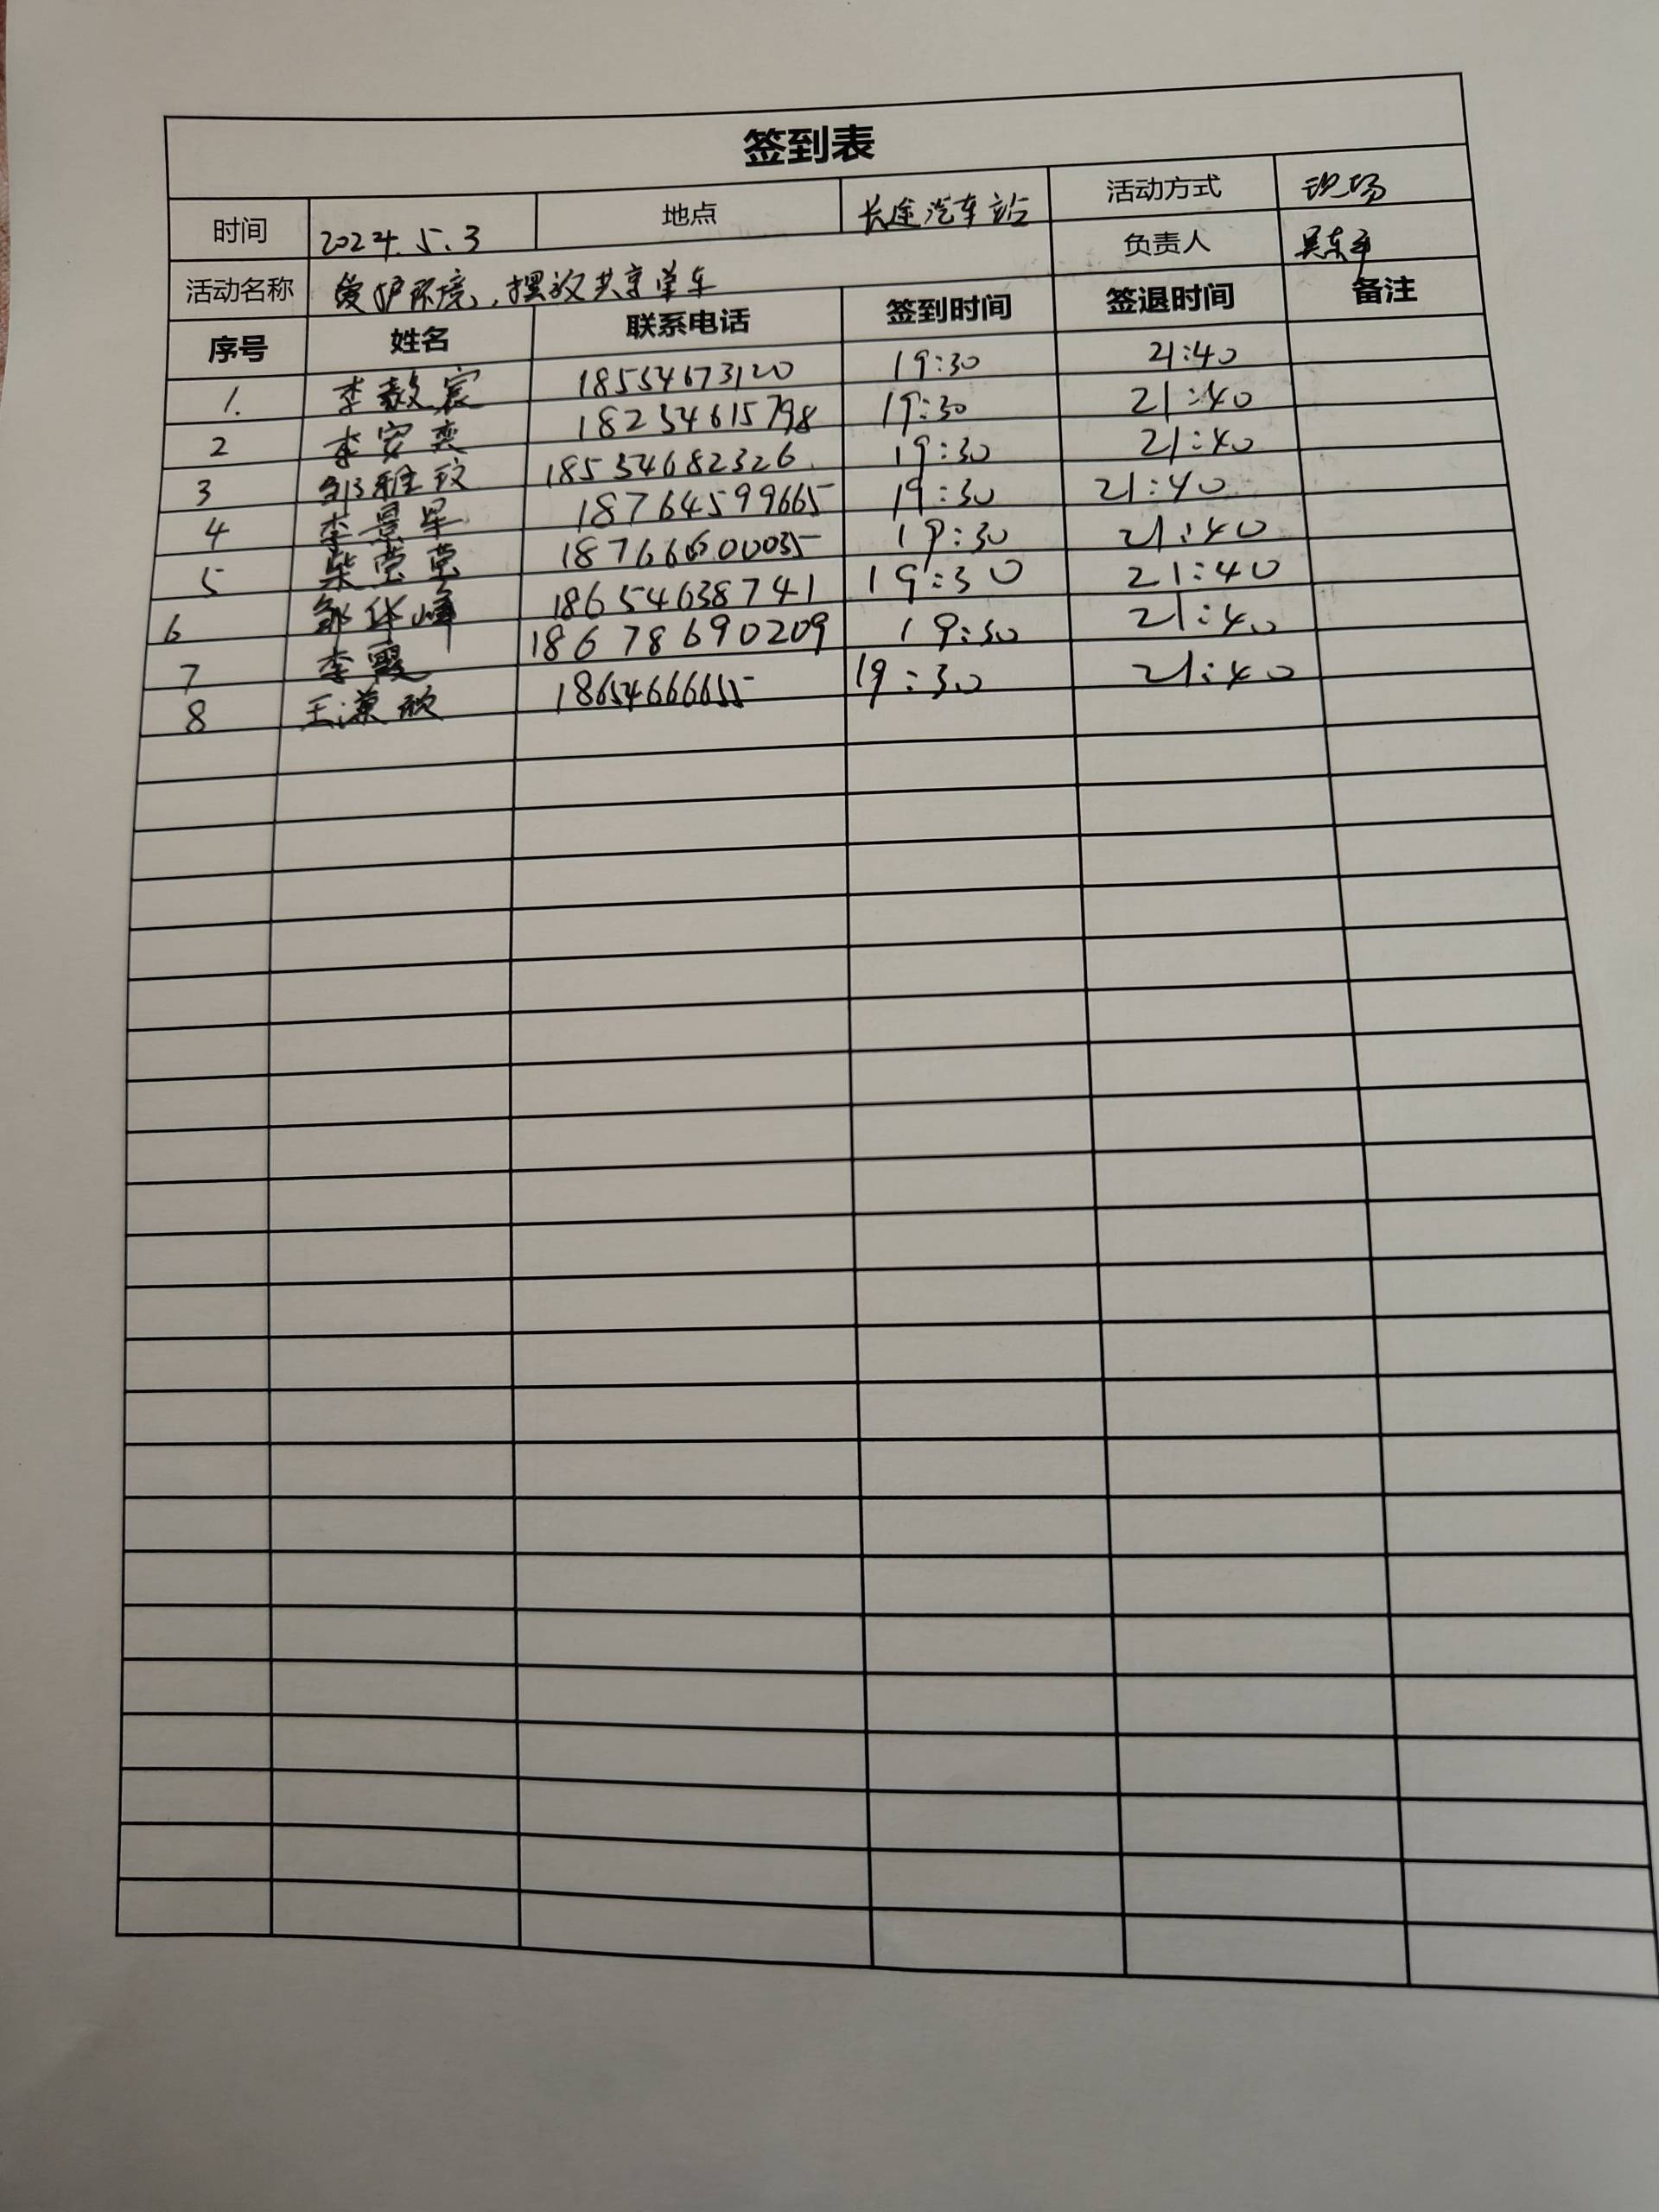 签到表
时间 2024.5.3 地点 长途汽车站 活动方式 现场
活动名称 爱护环境,摆放共享单车 负责人 吴东
序号 姓名 联系电话 签到时间 签退时间 备注
1. 李宸 18554673120 19:30 21:40
2 李安奕 18254615798 19:30 21:40
3 邹雅玟 18554682326 19:30 21:40
4 李景犀 18764599665 19:30 21:40
5 柴莹莹 18766600035 19:30 21:40
6 邹华峰 18654638741 19:30 21:40
7 李霞 18678690209 19:30 21:40
8 王欣 18654666655 19:30 21:40